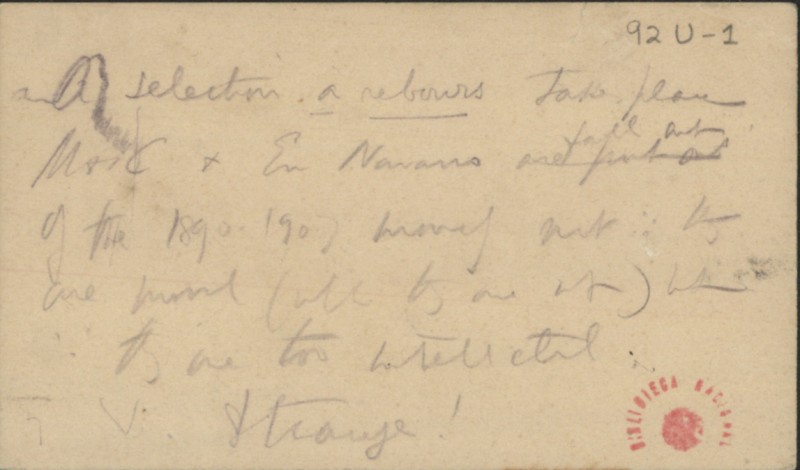 92U-1
A selection à rebours takes place
Mosc & En Navarro are put out
fall out
of the 1890-1907 not ∵ they
are (all they are not) but
∵ they are too intellectual.
V. Strange!
BIBLIOTECA NACIONAL